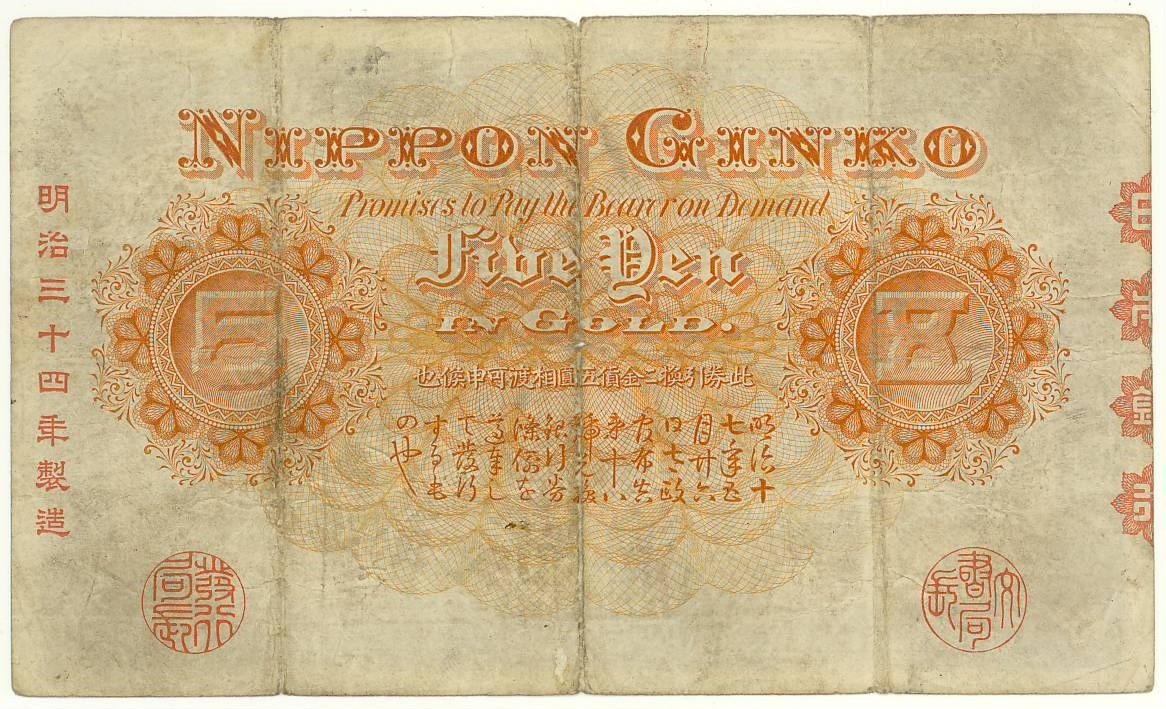 NIPPON GINKO
Promises to Pay the Bearer on Demand
Five Yen
IN GOLD.
此券引換ニ金貨五圓相渡可申候也
五
明治十
七年五
月廿六
日太政
官布告
第十八
號兌換
銀行券
條例を
遵奉し
て發行
するも
の也
明治三十四年製造
文書局長
發行局長